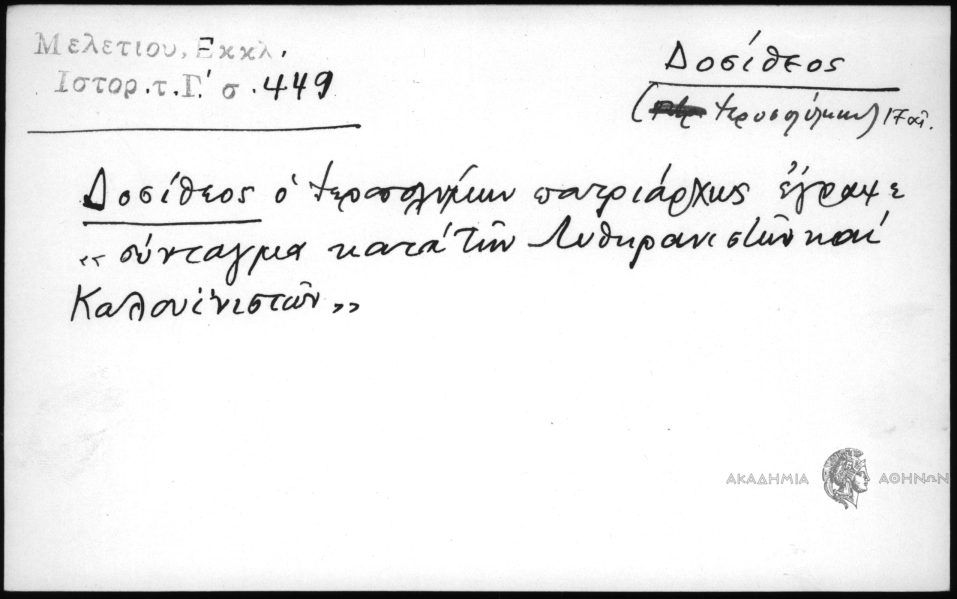 Μελετιου, Εκκλ.
Ιστορ. τ. Γ.' σ. 449
Δοσίθεος
(Ιεροσολύμων) 17 αἰ.
Δοσίθεος ὁ Ιεροσολύμων πατριάρχης ἔγραψε
«σύνταγμα κατά τῶν Λυθηρανιστῶν καί
Καλουϊνιστῶν»
ΑΚΑΔΗΜΙΑ ΑΘΗΝΩΝ